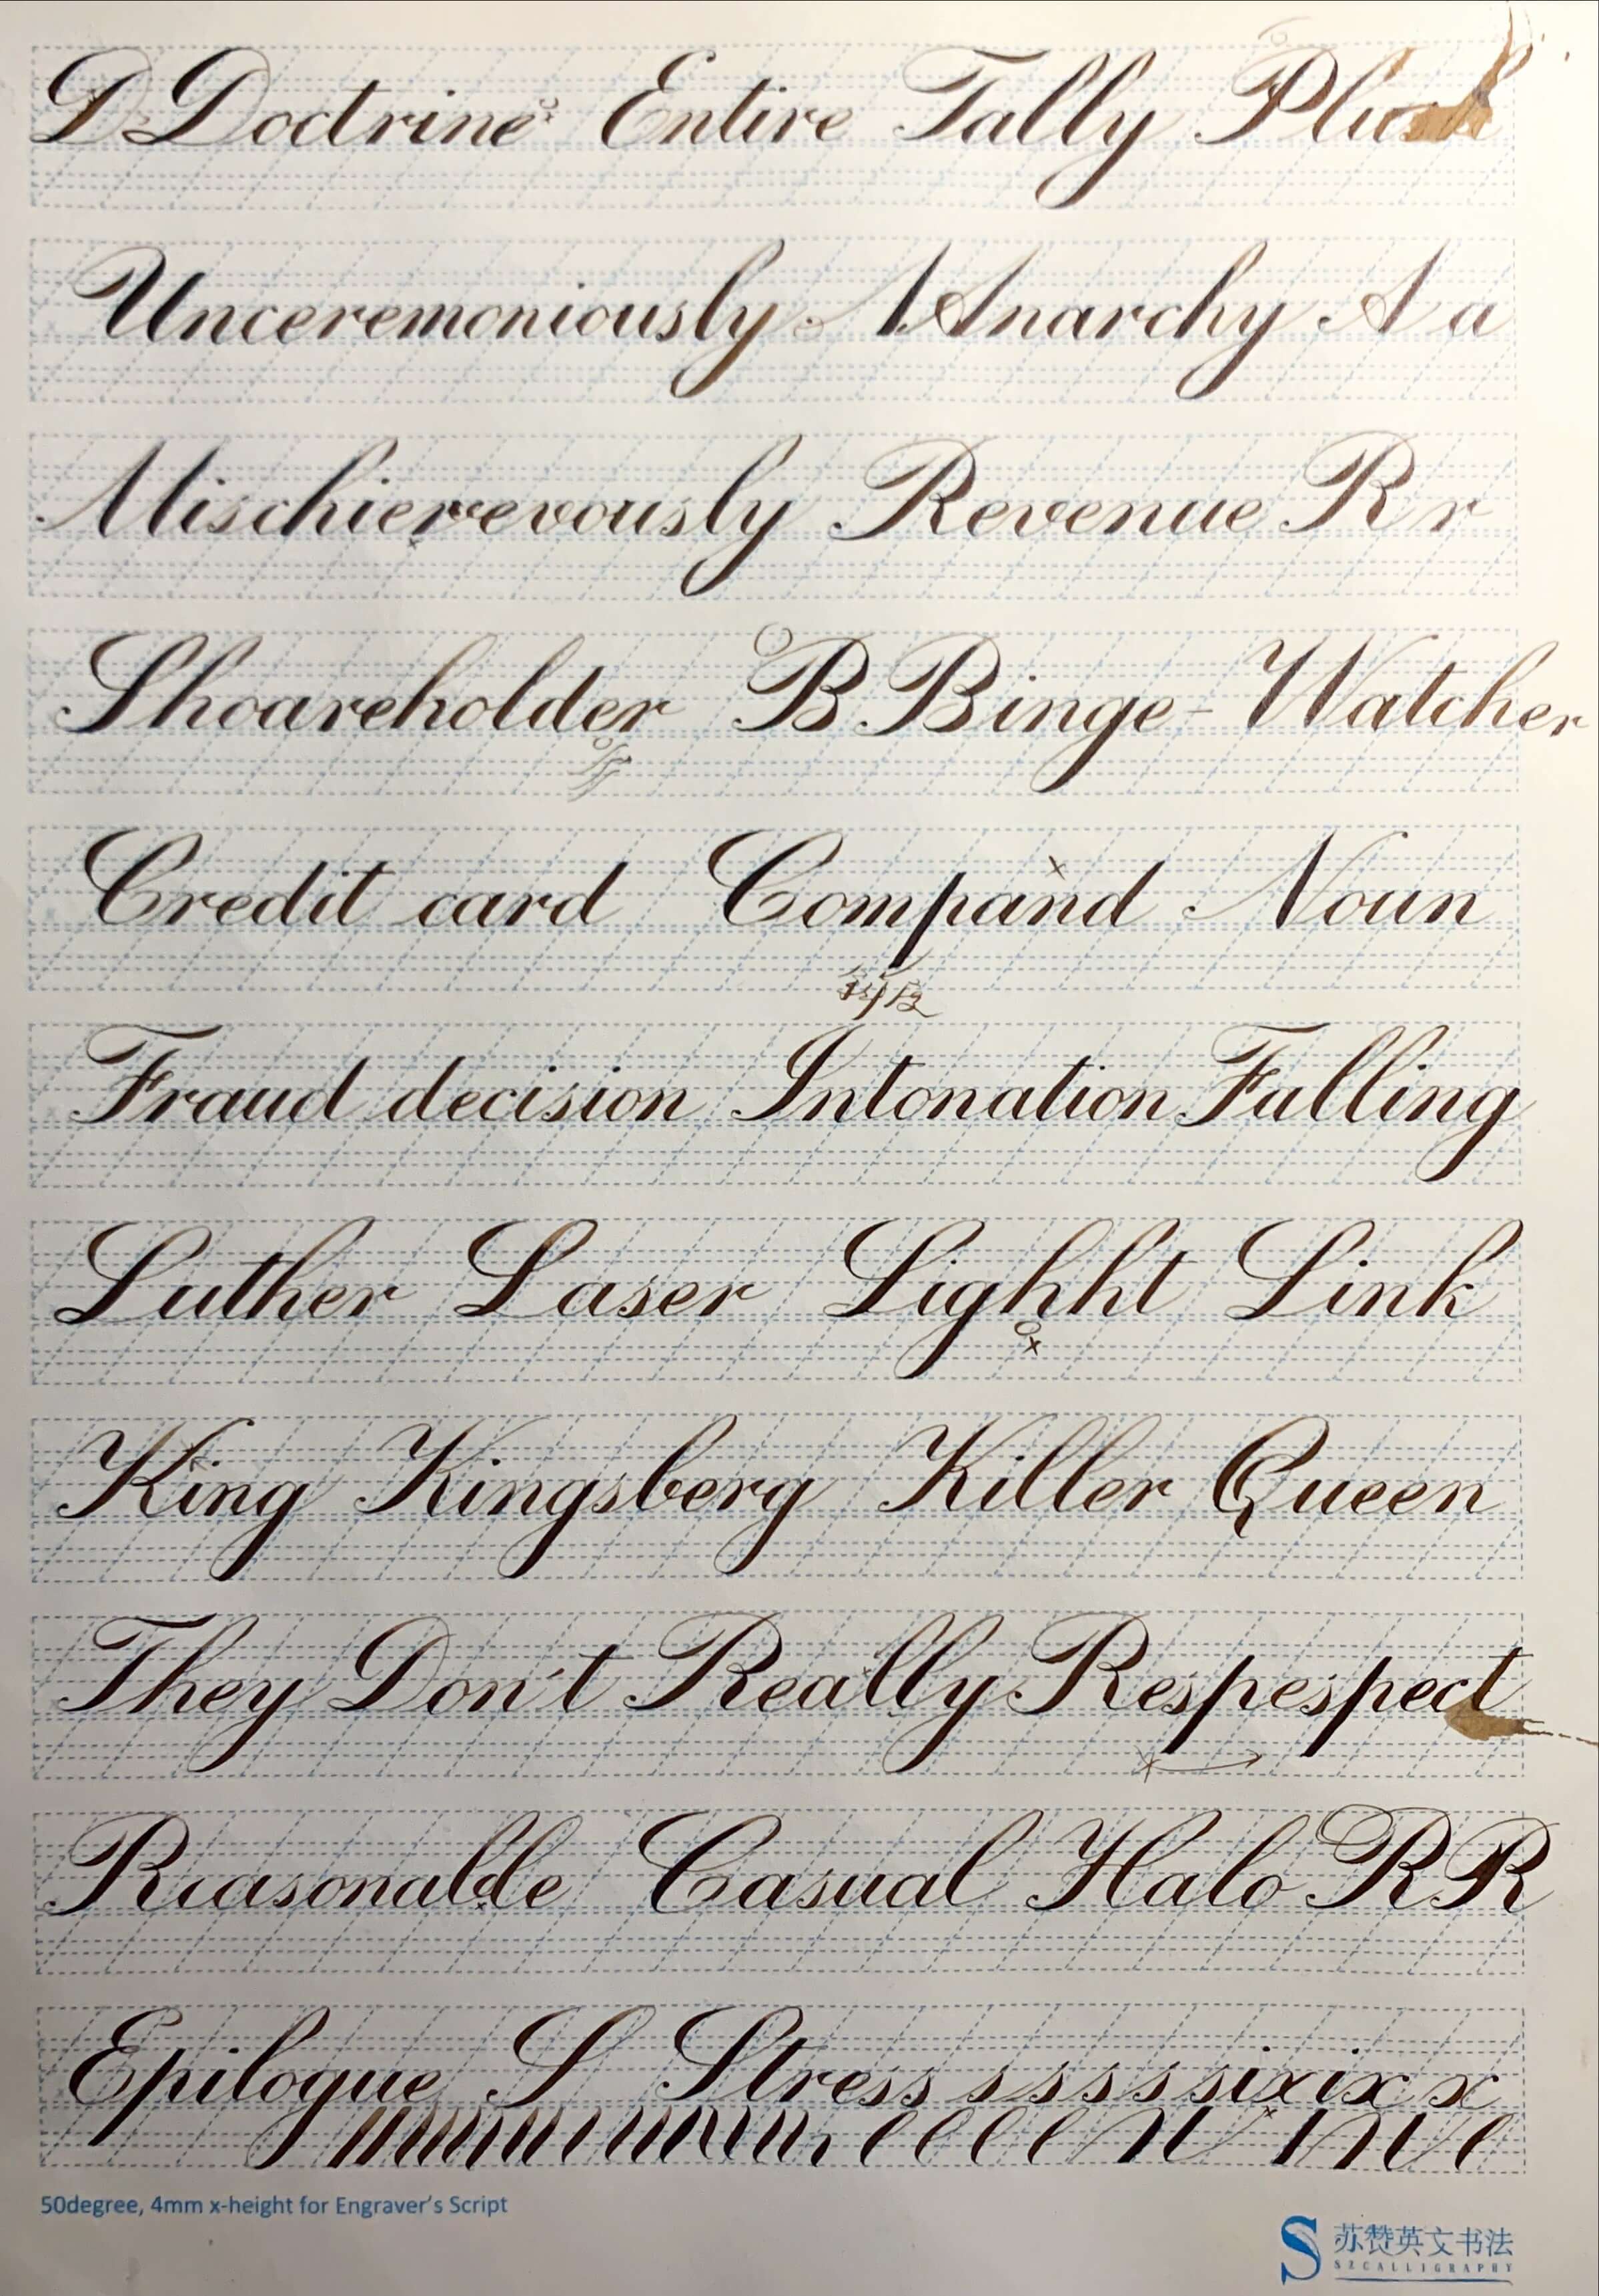 D Doctrine Entire Tally
Unceremoniously A Anarchy A a
Mischierevevously Revenue R r
Shoareholder B B Binge-Watcher
Credit card Compand Noun
Fraud decision Intonation Falling
Luther Laser Lighht Link
King Kingsberg Killer Queen
They Don't Really Respespect
Reasonable Casual Halo R R
Epilogue S Stress s s s s s sixix x
50degree, 4mm x-height for Engraver's Script
S 苏赞英文书法
SZCALLIGRAPHY